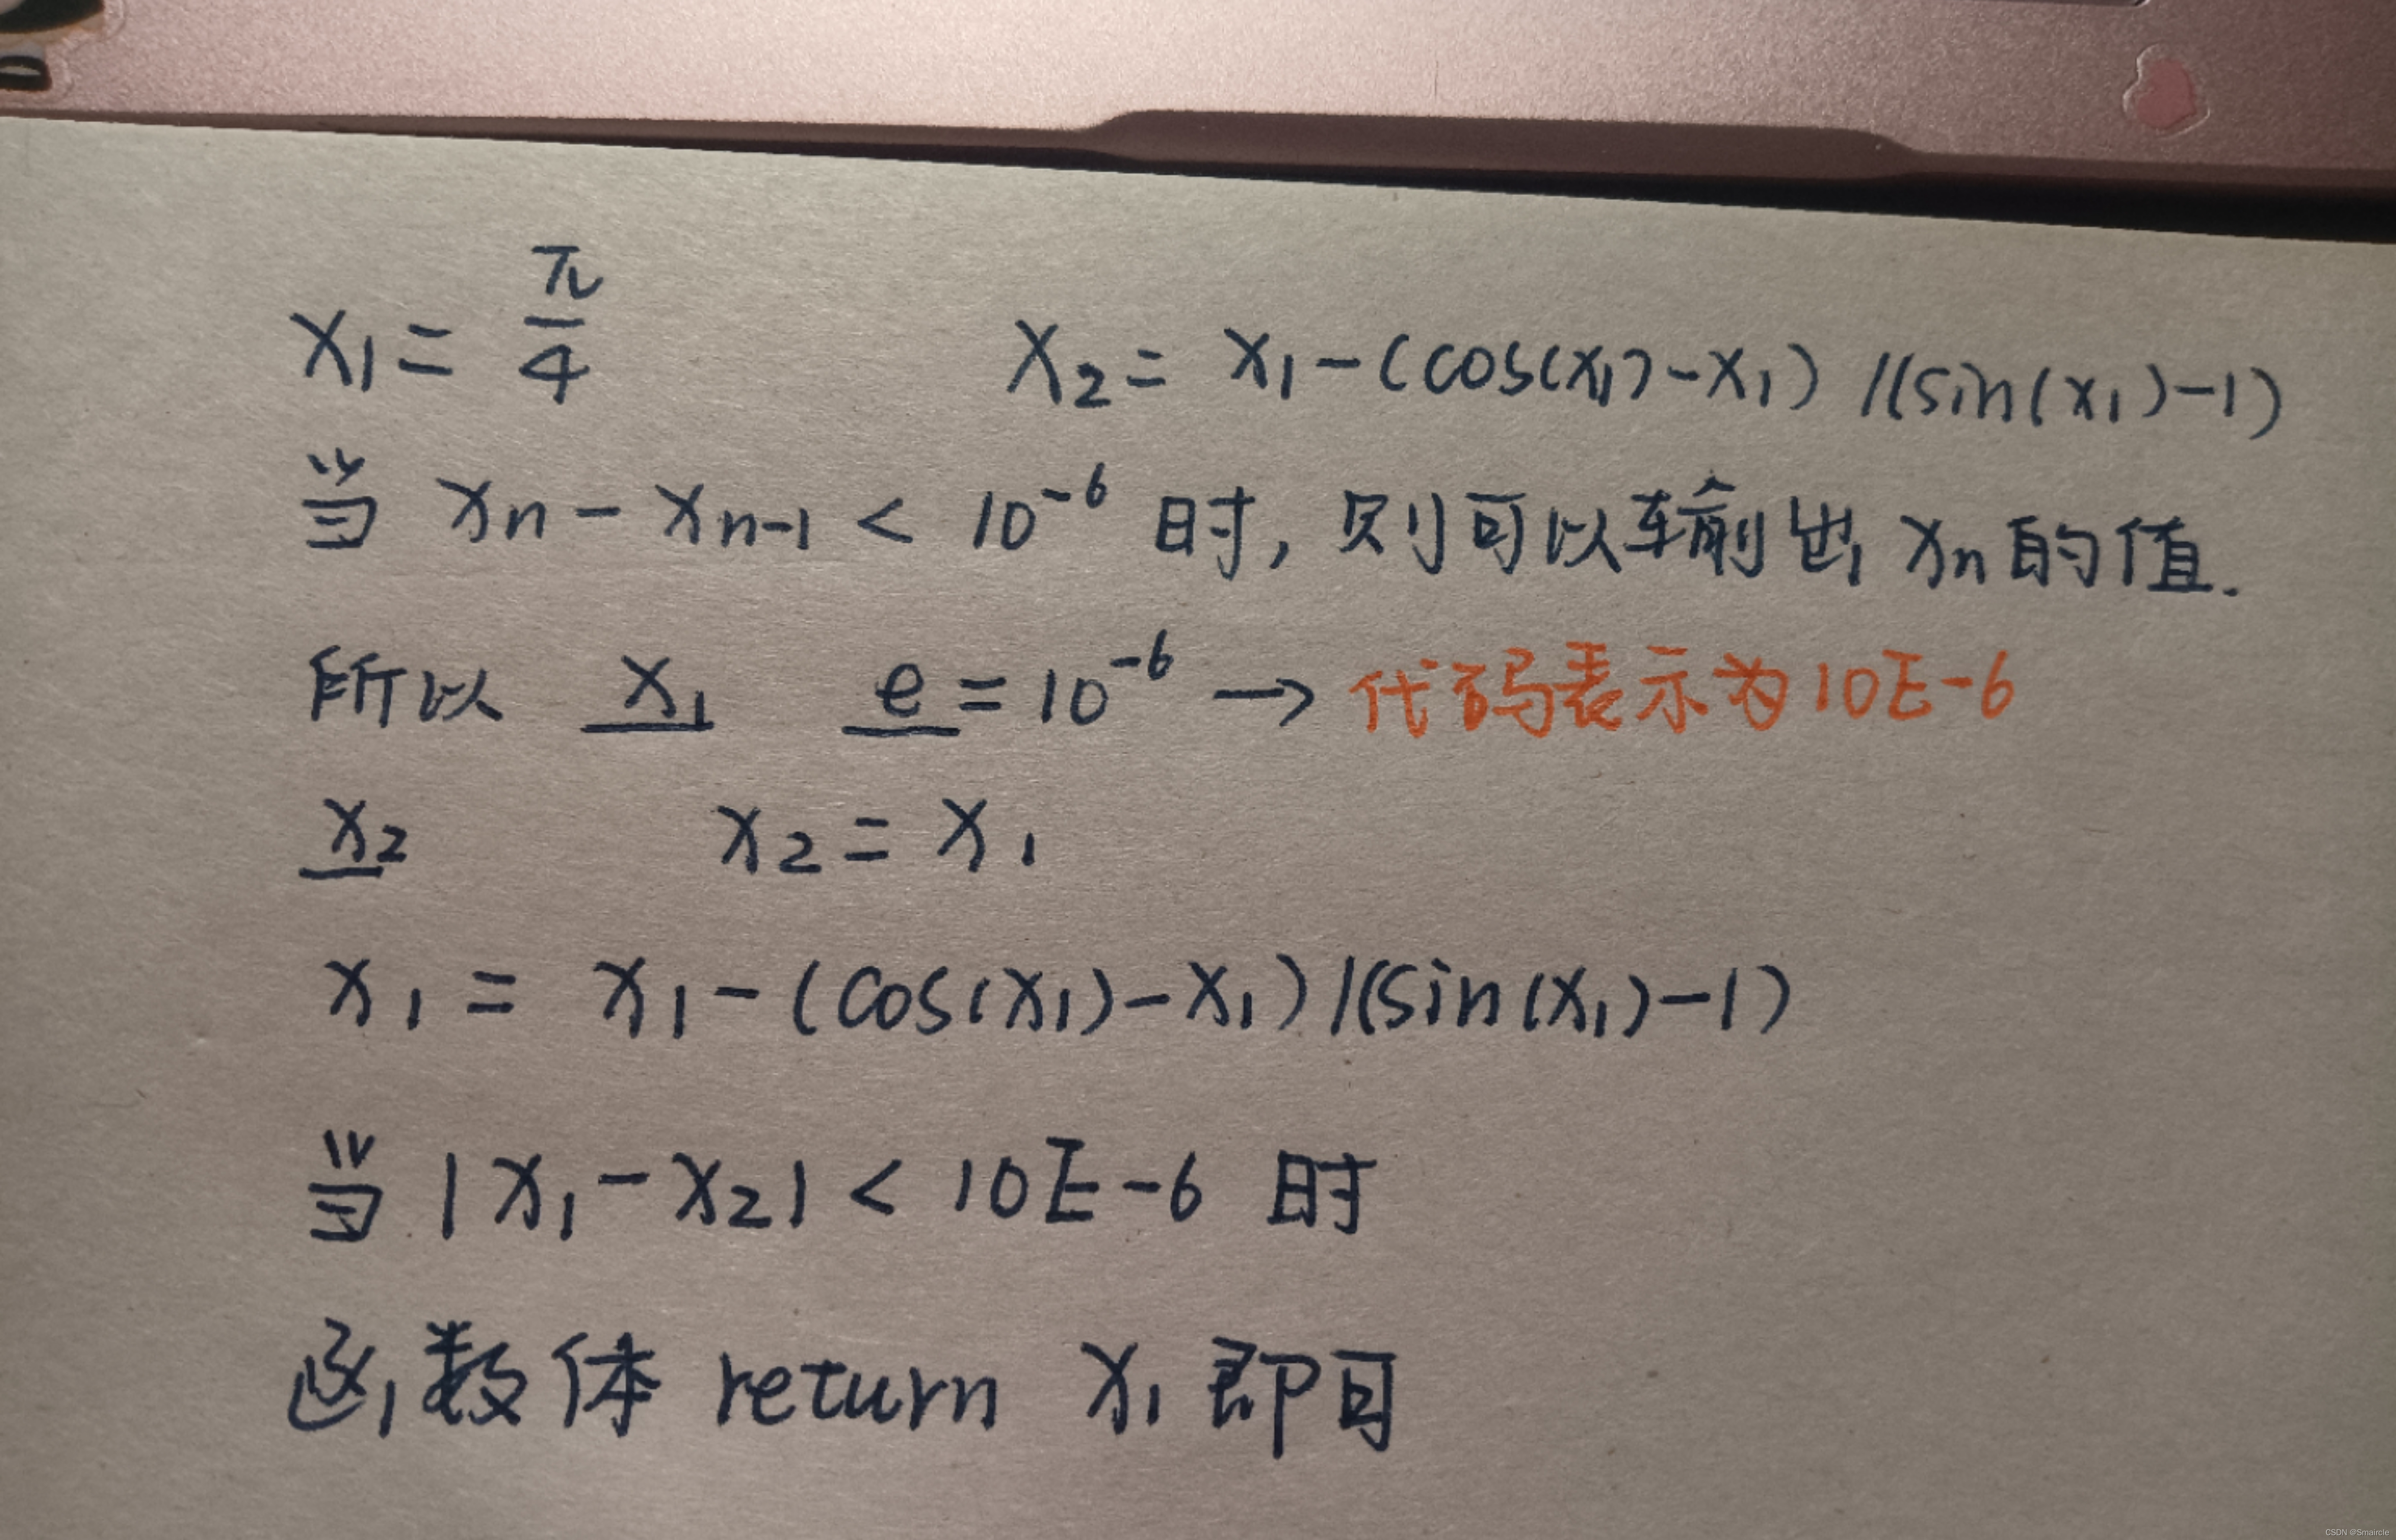 x₁ = π/4 x₂ = x₁-(cos(x₁)-x₁) /(sin(x₁)-1)
当 xn - xn-1 < 10⁻⁶ 时, 则可以输出 xn 的值.
所以 x₁ e = 10⁻⁶ → 代码表示为10E-6
x₂ x₂ = x₁
x₁ = x₁-(cos(x₁)-x₁)/(sin(x₁)-1)
当 |x₁-x₂| < 10E-6 时
函数体 return x₁ 即可
CSDN @Smaircle